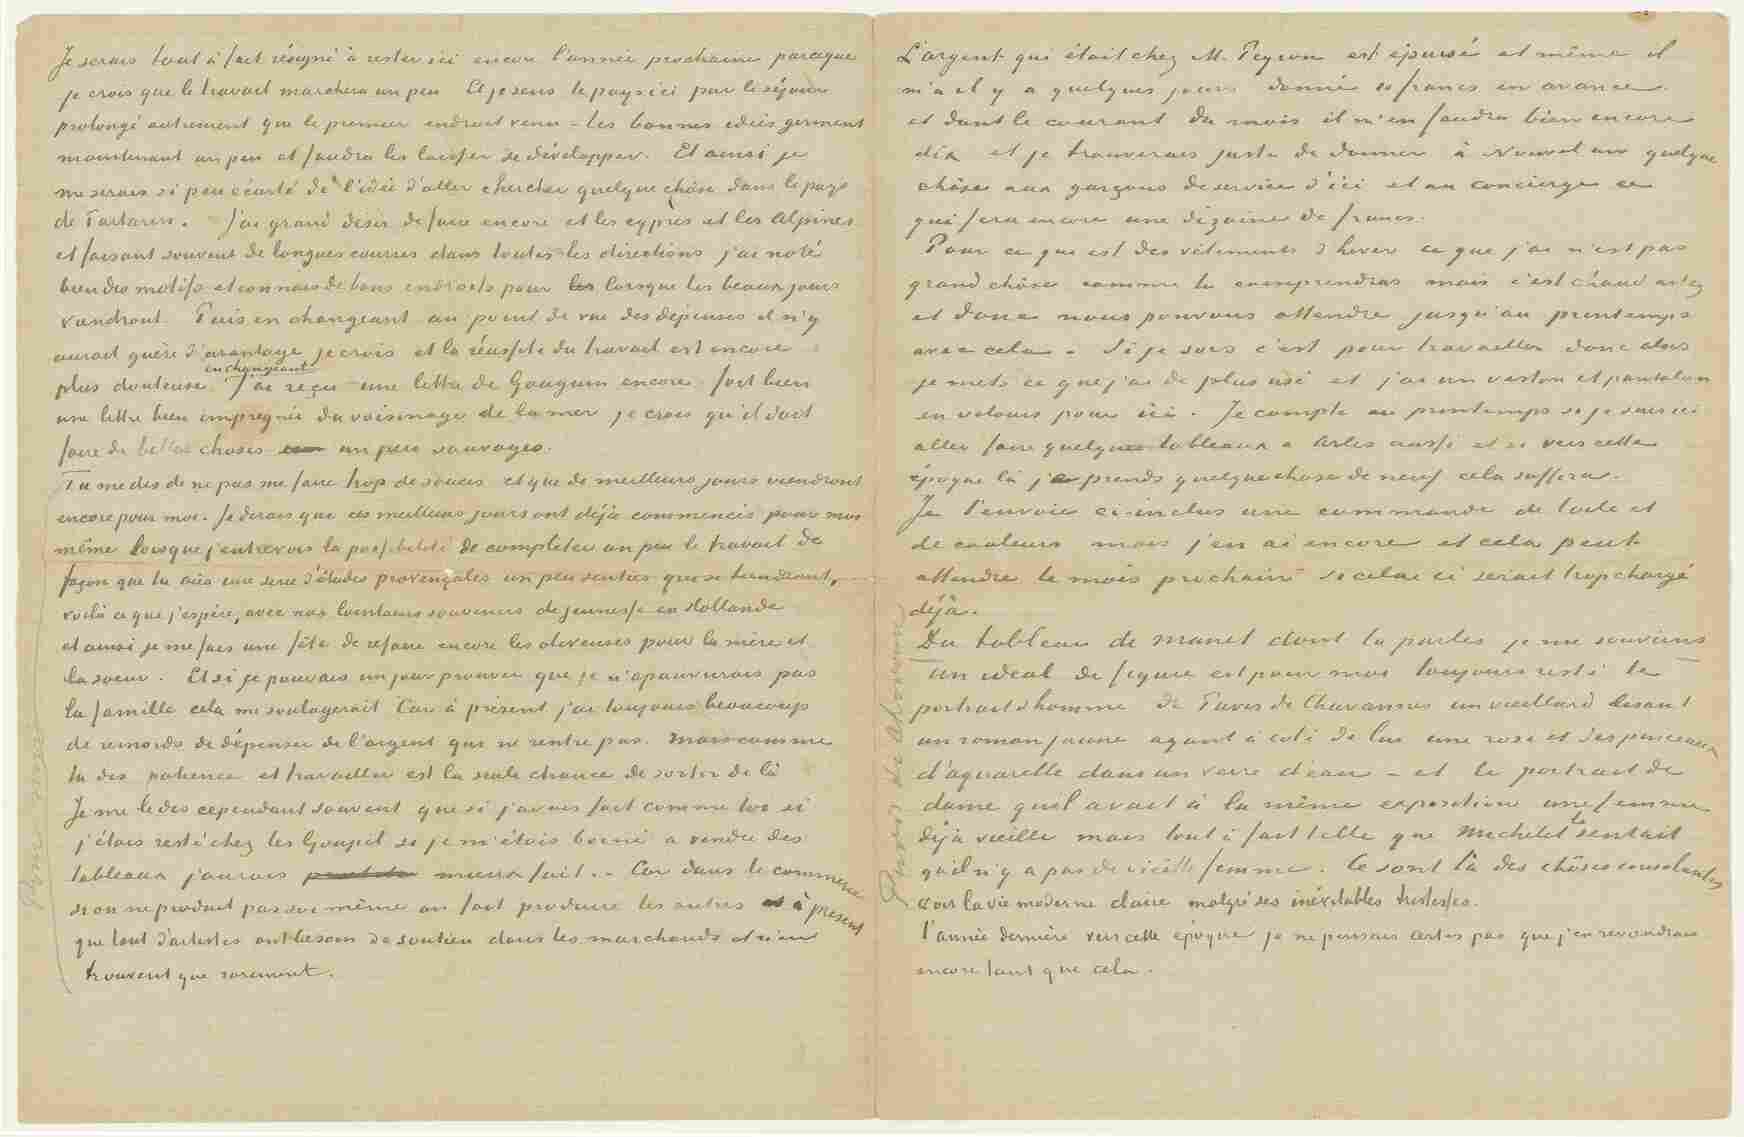 Je serais tout à fait résigné à rester ici encore l'année prochaine parceque
je crois que le travail marchera un peu Et je sens le pays ici par le séjour
prolongé autrement que le premier endroit venu – les bonnes idées germent
maintenant un peu et faudra les laisser se développer. Et ainsi je
me serais si peu écarté de l'idée d'aller chercher quelque chôse dans le pays
de Tartarin. J'ai grand désir de faire encore et les cyprès et les Alpines
et faisant souvent de longues courses dans toutes les directions j'ai noté
bien des motifs et connais de bons endroits pour les lorsque les beaux jours
viendront. Puis en changeant au point de vue des dépenses il n'y
aurait guère d'avantage je crois et la réussite du travail est encore
plus douteuse en changeant. J'ai reçu une lettre de Gauguin encore fort bien
une lettre bien imprégnée du voisinage de la mer je crois qu'il doit
faire de belles choses un peu sauvages.
Tu me dis de ne pas me faire trop de soucis et que de meilleurs jours viendront
encore pour moi. Je dirais que ces meilleurs jours ont déjà commencés pour moi
même lorsque j'entrevois la possibilité de completer un peu le travail de
façon que tu aies une serie d'études provençales un peu senties qui se tiendront,
voilà ce que j'espère, avec nos lointains souvenirs de jeunesse en Hollande
et ainsi je me fais une fête de refaire encore les oliveuses pour la mère et
la soeur. Et si je pouvais un jour prouver que je n'apauvrirais pas
la famille cela me soulagerait Car à présent j'ai toujours beaucoup
de remords de dépenser de l'argent qui ne rentre pas. Mais comme
tu dis patience et travailler est la seule chance de sortir de là
Je me le dis cependant souvent que si j'avais fait comme toi si
j'étais resté chez les Goupil si je m'étais borné à vendre des
tableaux j'aurais mieux fait. – Car dans le commerce
si on ne produit pas soi même on fait produire les autres à présent
que tant d'artistes ont besoin de soutien dans les marchands et n'en
trouvent que rarement.
L'argent qui était chez M. Peyron est épuisé et même il
m'a il y a quelques jours donné 10 francs en avance
et dans le courant du mois il m'en faudra bien encore
dix et je trouverais juste de donner à Nouvel an quelque
chôse aux garçons de service d'ici et au concierge ce
qui fera encore une dizaine de francs.
Pour ce qui est des vêtements d'hiver ce que j'ai n'est pas
grand chôse comme tu comprendras mais c'est chaud assez
et donc nous pouvons attendre jusqu'au printemps
avec cela. Si je sors c'est pour travailler donc alors
je mets ce que j'ai de plus usé et j'ai un veston et pantalon
en velours pour ici. Je compte au printemps si je suis ici
aller faire quelques tableaux à Arles aussi et si vers cette
époque là j'en prends quelque chose de neuf cela suffira.
Je t'envoie ci-inclus une commande de toile et
de couleurs mais j'en ai encore et cela peut
attendre le mois prochain si celui ci serait trop chargé
déjà.
Du tableau de Manet dont tu parles je me souviens
Un idéal de figure est pour moi toujours resté le
portrait d'homme de Puvis de Chavannes un vieillard lisant
un roman jaune ayant à coté de lui une rose et des pinceaux
d'aquarelle dans un verre d'eau – et le portrait de
dame qu'il avait à la même exposition une femme
déjà vieille mais tout à fait telle que Michelet le sentait
qu'il n'y a pas de vieille femme. Ce sont là des chôses consolantes
voir la vie moderne claire malgré ses inévitables tristesses.
L'année dernière vers cette époque je ne pensais certes pas que j'en reviendrais
encore tant que cela.
Puvis de Chavannes